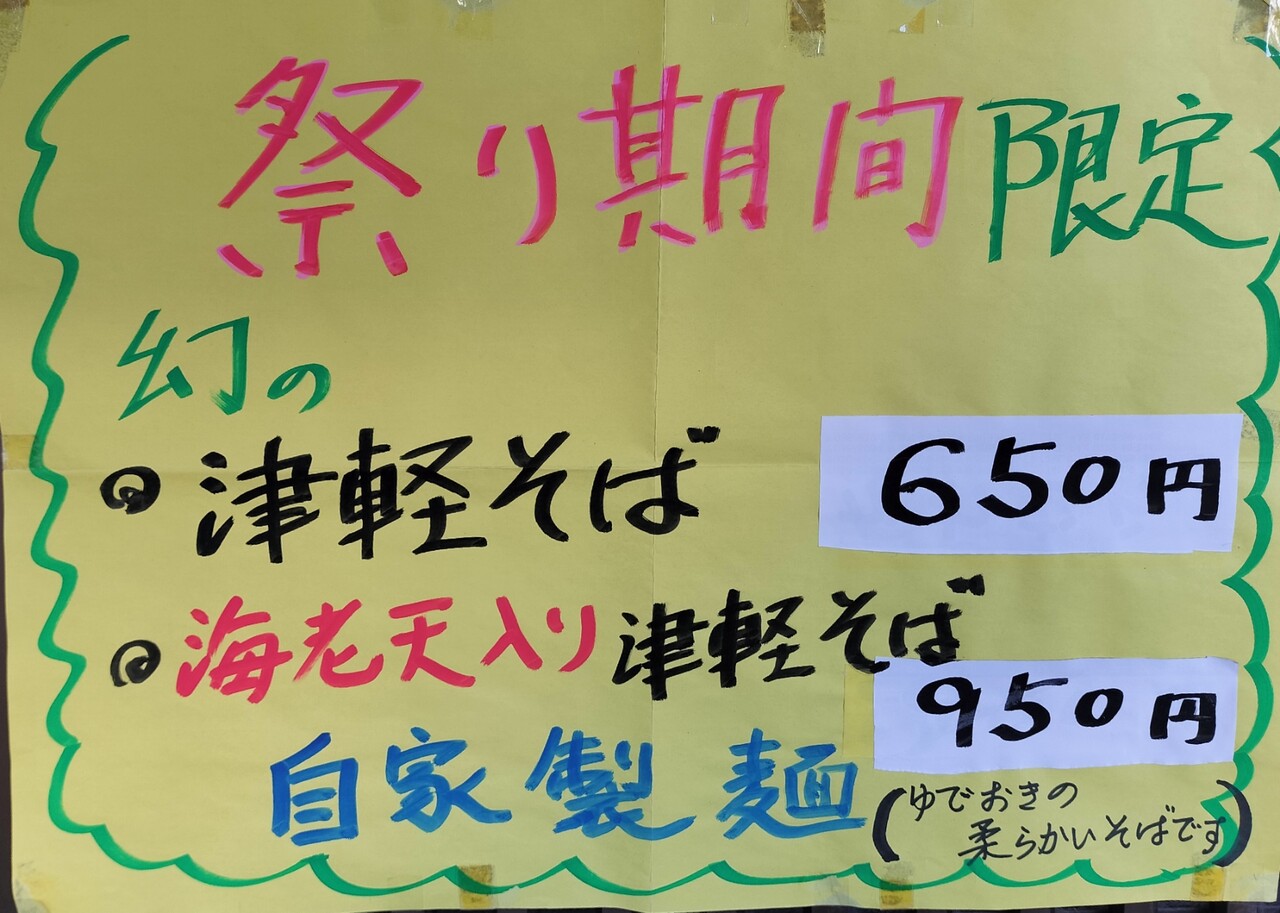 祭り期間限定
幻の
津軽そば 650円
海老天入り津軽そば
950円
自家製麺
(ゆでおきの
柔らかいそばです)